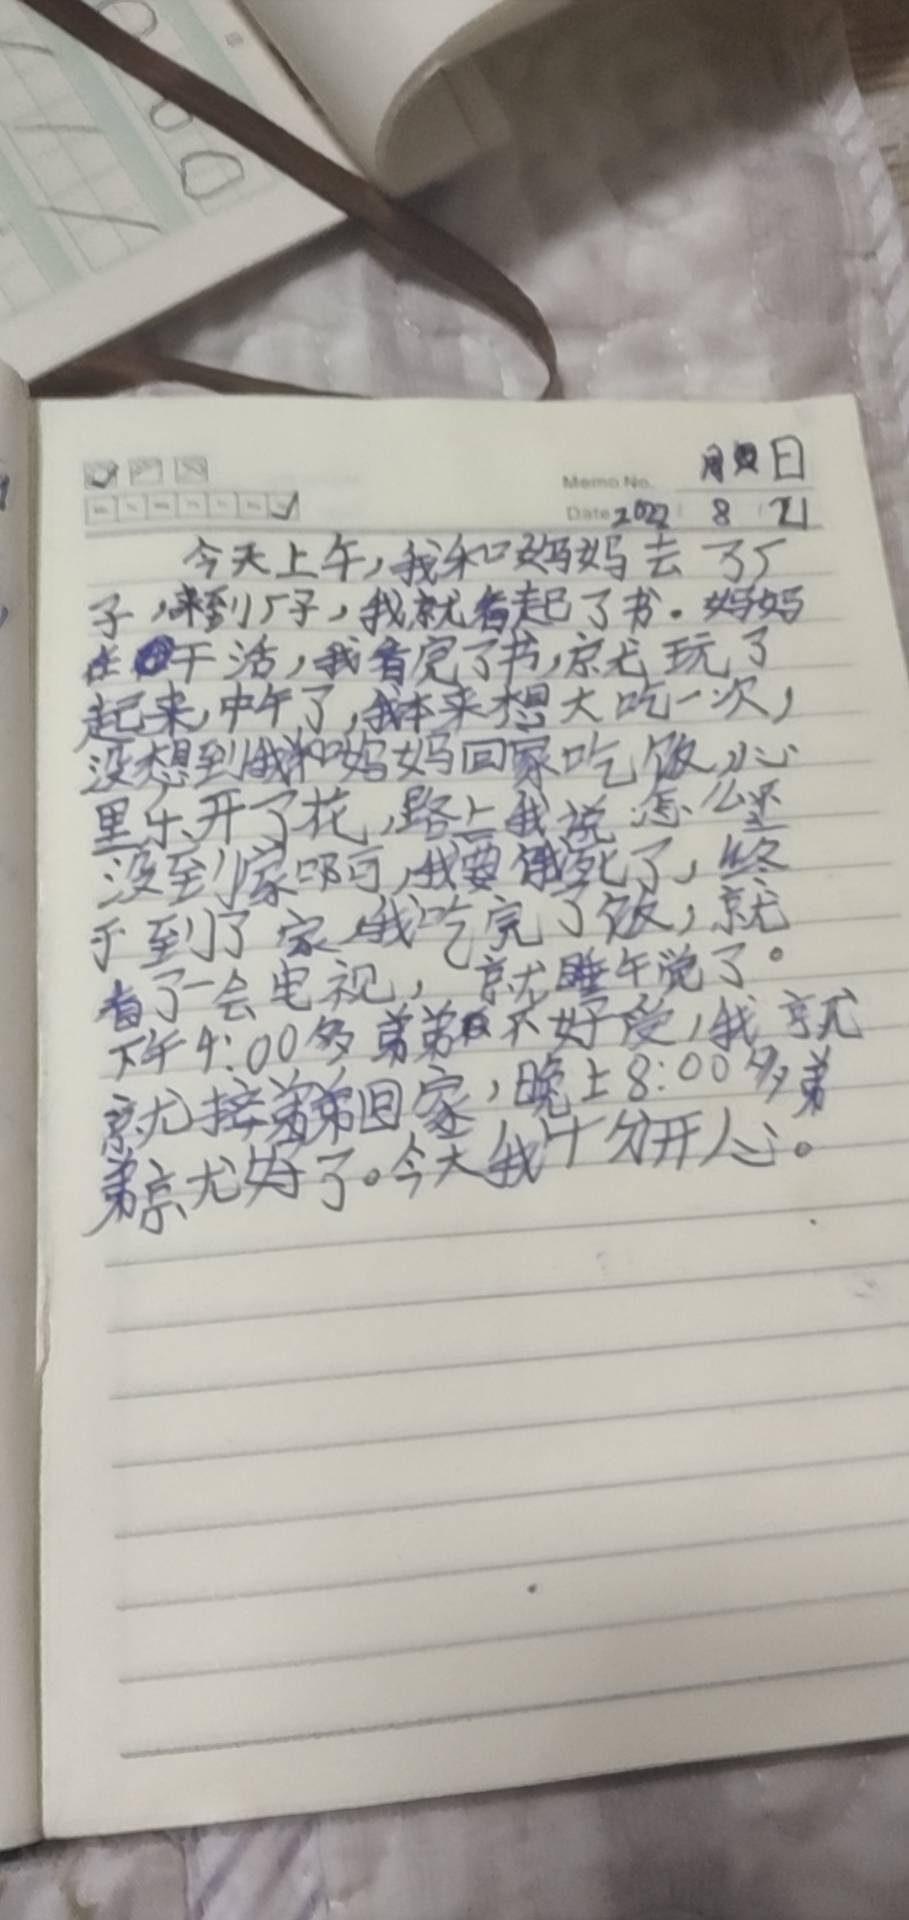 日
Memo No.
Date 2022 8 21
今天上午,我和妈妈去了厂
子,来到厂子,我就看起了书。妈妈
在干活,我看完了书,就玩了
起来,中午了,我本来想大吃一次,
没想到我和妈妈回家吃饭,心
里乐开了花,路上我说怎么还
没到家啊,我要饿死了,终
于到了家,我吃完了饭,就
看了一会电视,就睡午觉了。
下午4:00多弟弟不好受,我就
就接弟弟回家,晚上8:00多弟
弟就好了。今天我十分开心。